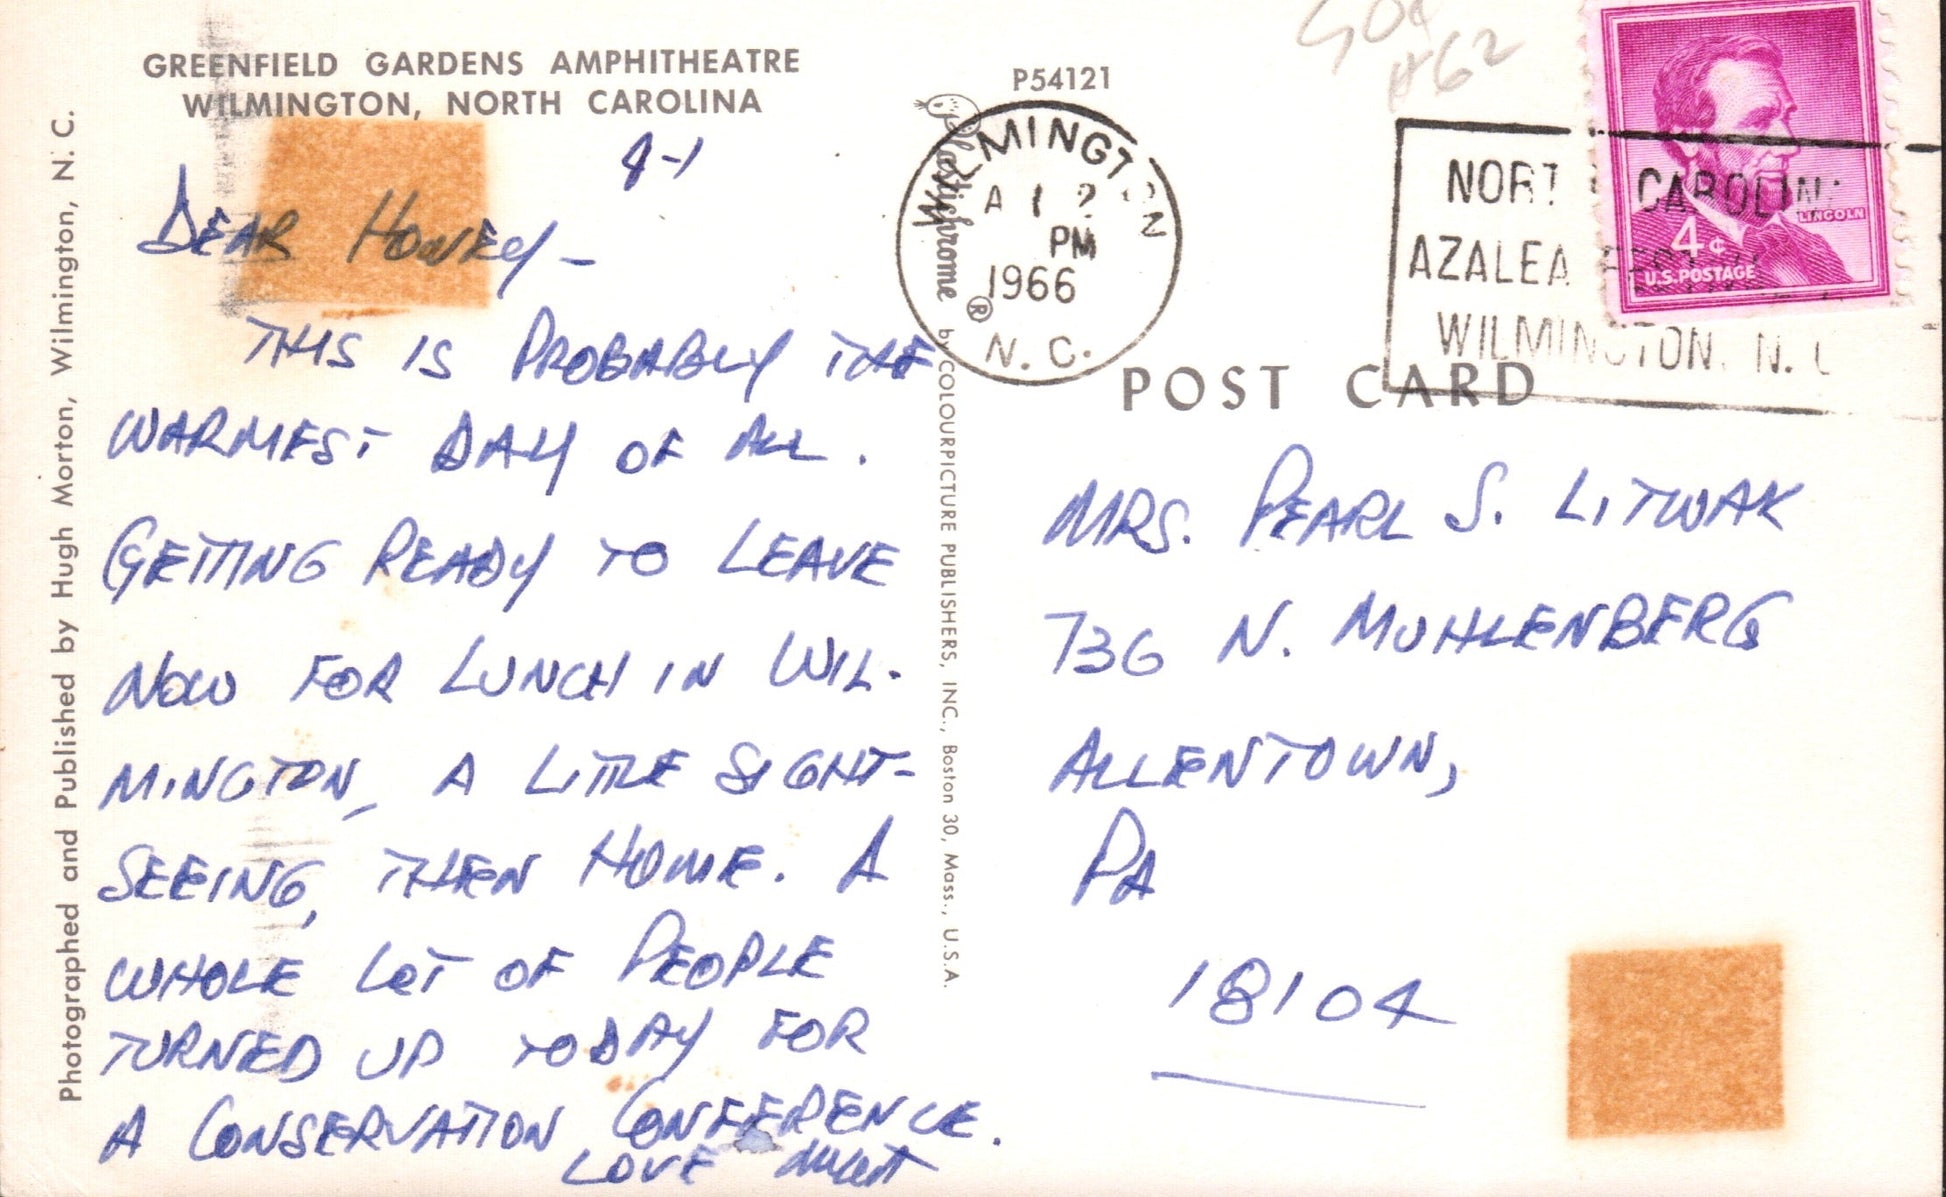 GREENFIELD GARDENS AMPHITHEATRE
WILMINGTON, NORTH CAROLINA
4-1
DEAR HONEY -
THIS IS PROBABLY THE
WARMEST DAY OF ALL.
GETTING READY TO LEAVE
NOW FOR LUNCH IN WIL-
MINGTON, A LITTLE SIGHT-
SEEING, THEN HOME. A
WHOLE LOT OF PEOPLE
TURNED UP TODAY FOR
A CONSERVATION CONFERENCE.
LOVE
Photographed and Published by Hugh Morton, Wilmington, N. C.
Plastichrome ® by COLOURPICTURE PUBLISHERS, INC., Boston 30, Mass., U.S.A.
P54121
50¢
#62
MINGT N
PM
1966
N. C.
NORT CAROLIN
AZALEA
WILMINGTON, N. C
LINCOLN
4¢
U.S. POSTAGE
POST CARD
MRS. PEARL S. LITWAK
736 N. MUHLENBERG
ALLENTOWN,
PA
18104